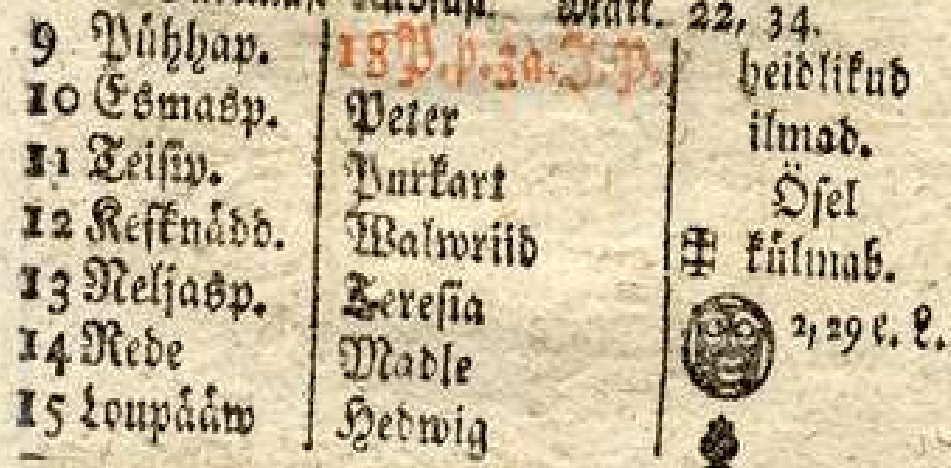 Matt. 22, 34.
9 Pühhap. 18 P. p. 3a. J. P. heidlikud
10 Esmasp. Peter ilmad.
11 Teisip. Purkart Ösel
12 Kesknädd. Walwriid külmab.
13 Neljasp. Teresia
14 Rede Madse 2, 29 e. L.
15 Loupääw Hedwig